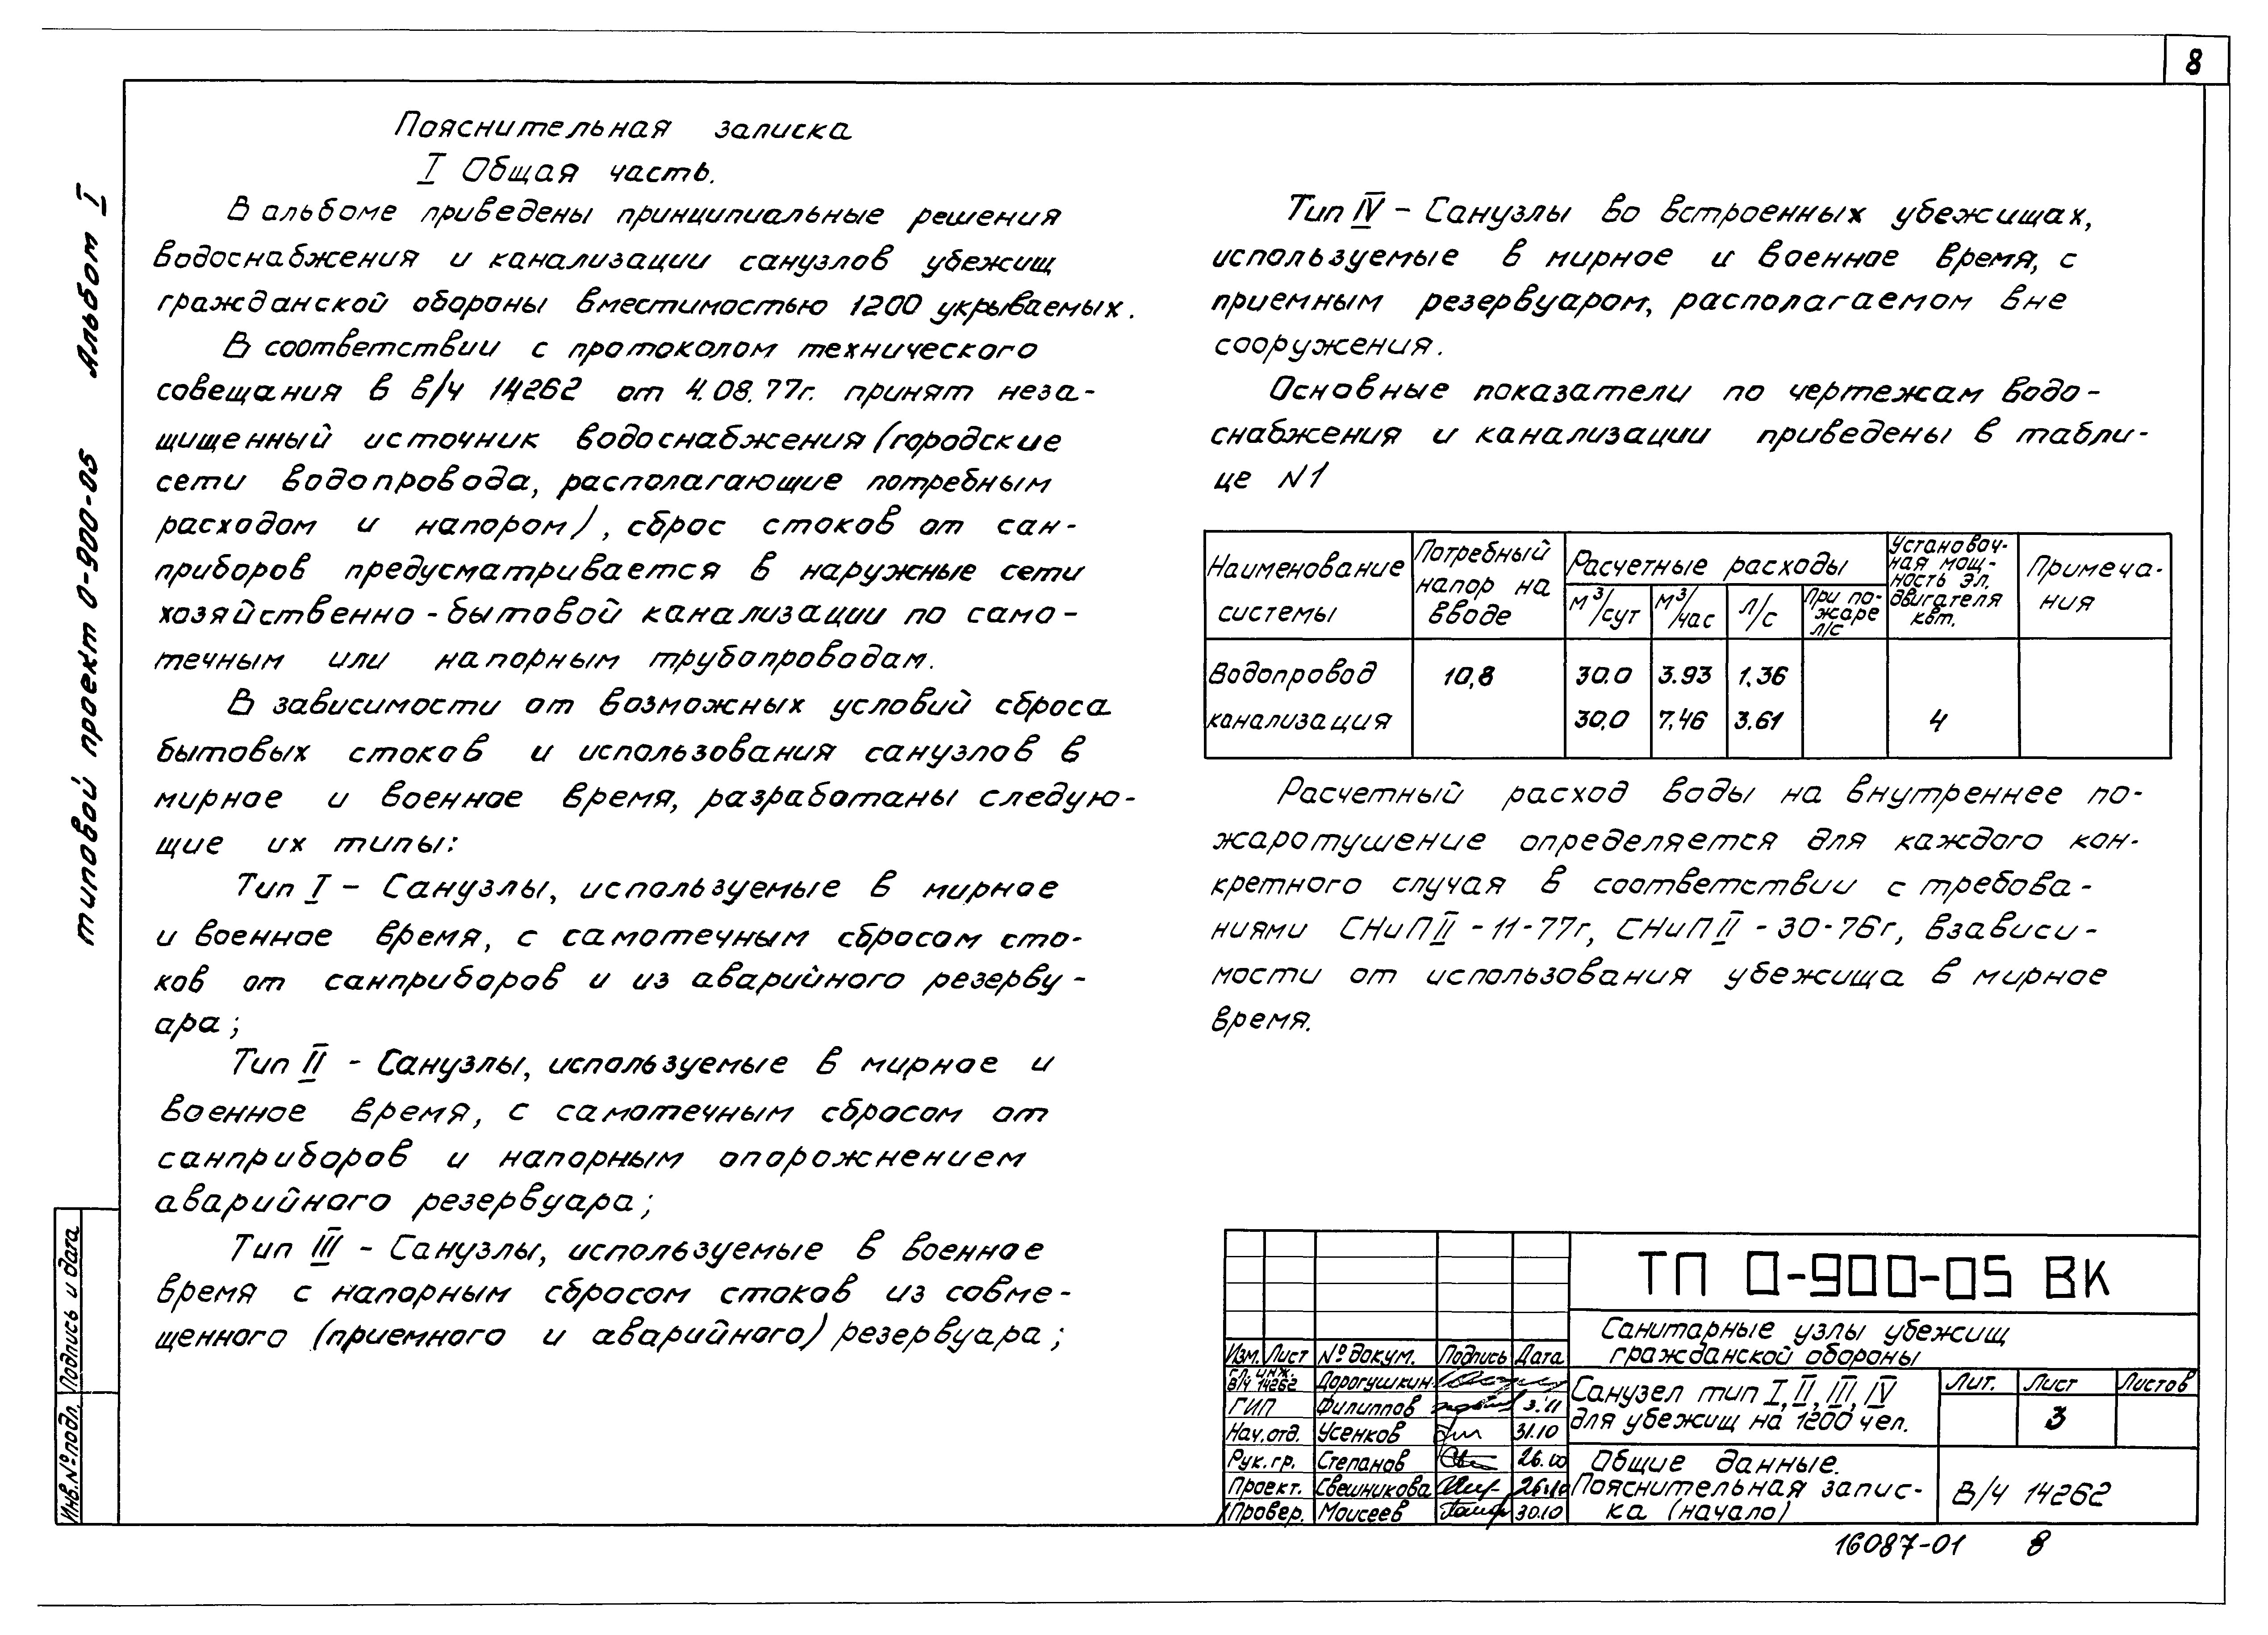 8
Пояснительная записка
I Общая часть.
В альбоме приведены принципиальные решения
водоснабжения и канализации санузлов убежищ
гражданской обороны вместимостью 1200 укрываемых.
В соответствии с протоколом технического
совещания в в/ч 14262 от 4.08.77г. принят неза-
щищенный источник водоснабжения (городские
сети водопровода, располагающие потребным
расходом и напором), сброс стоков от сан-
приборов предусматривается в наружные сети
хозяйственно-бытовой канализации по само-
течным или напорным трубопроводам.
В зависимости от возможных условий сброса
бытовых стоков и использования санузлов в
мирное и военное время, разработаны следую-
щие их типы:
Тип I – Санузлы, используемые в мирное
и военное время, с самотечным сбросом сто-
ков от санприборов и из аварийного резерву-
ара;
Тип II - Санузлы, используемые в мирное и
военное время, с самотечным сбросом от
санприборов и напорным опорожнением
аварийного резервуара;
Тип III - Санузлы, используемые в военное
время с напорным сбросом стоков из совме-
щенного (приемного и аварийного) резервуара;
Тип IV – Санузлы во встроенных убежищах,
используемые в мирное и военное время, с
приемным резервуаром, располагаемом вне
сооружения.
Основные показатели по чертежам водо-
снабжения и канализации приведены в табли-
це N1
Наименование системы
Потребный напор на вводе
Расчетные расходы
м³/сут
м³/час
л/с
При по-жаре л/с
Установоч-ная мощ-ность эл. двигателя квт.
Примеча-ния
Водопровод 10,8 30.0 3.93 1,36
канализация 30,0 7,46 3.61 4
Расчетный расход воды на внутреннее по-
жаротушение определяется для каждого кон-
кретного случая в соответствии с требова-
ниями СНиП II - 11-77г, СНиП II - 30-76г, взависи-
мости от использования убежища в мирное
время.
типовой проект 0-900-05 Альбом I
Подпись и дата
Инв.№подл.
ТП 0-900-05 ВК
Санитарные узлы убежищ
гражданской обороны
Изм. Лист №докум. Подпись Дата
Гл. инж. в/ч 14262 Дорогушкин
ГИП Филиппов 3.11
Нач.отд. Усенков 31.10
Рук.гр. Степанов 26.10
Проект. Свешникова 26.10
Провер. Моисеев 30.10
Санузел тип I, II, III, IV
для убежищ на 1200 чел.
Лит. Лист Листов
3
Общие данные.
Пояснительная запис-
ка (начало)
В/ч 14262
16087-01 8